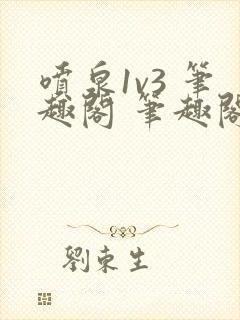 噴泉1v3 筆
趣閣 筆趣閣
劉東生